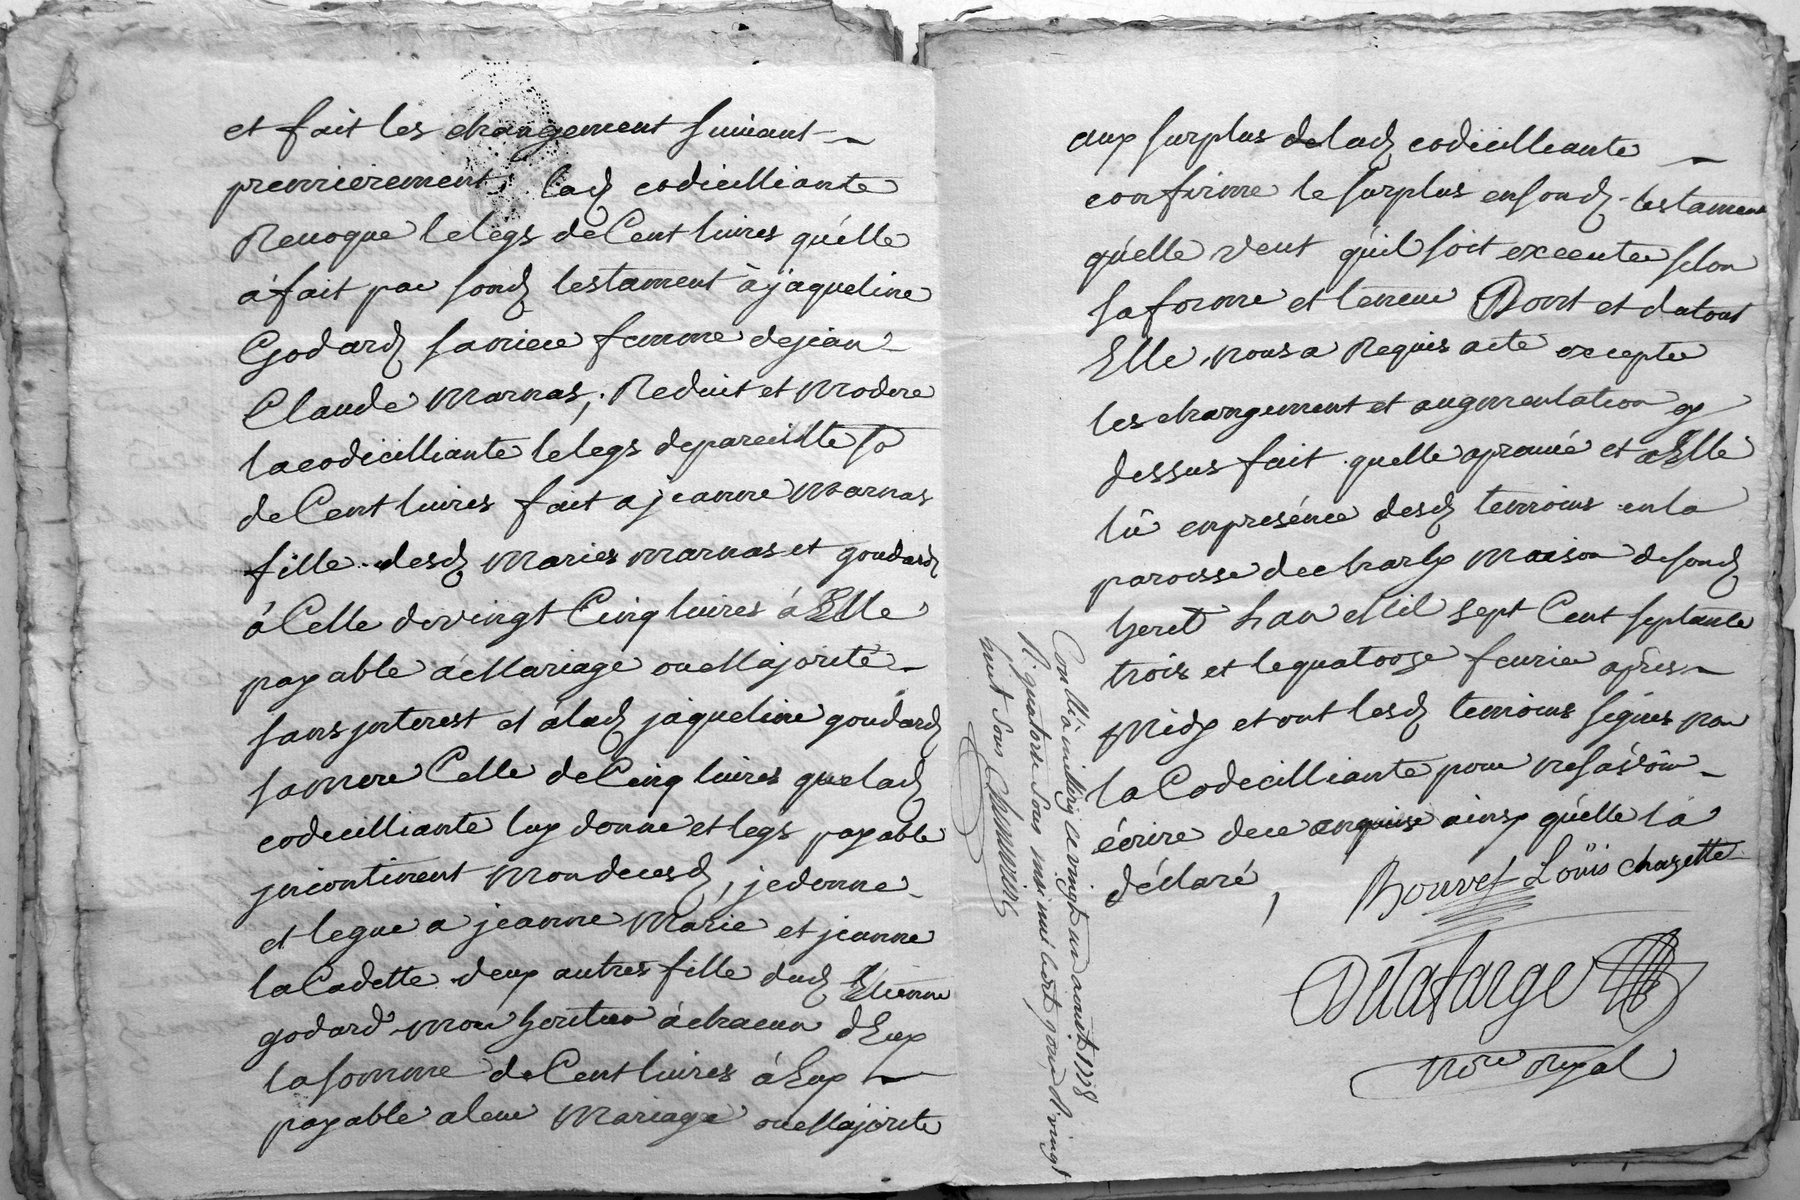 et fait les changement suivant
premierement, lad codicilliante
Revoque le legs de Cent livres qu'elle
a fait par sond testament à jaqueline
Godard sa niece femme de jean
Claude marnas, Reduit et modere
la codicilliante le legs de pareille so
de Cent livres fait a jeanne marnas
fille desd maries marnas et goudard
à Celle de vingt Cinq livres à Elle
payable à Mariage ou Majorité
sans jnterest et à lad jaqueline goudard
sa mere Celle de Cinq livres que lad
codicilliante luy donne et legs payable
jncontinent mon decesd, je donne
et legue a jeanne Marie et jeanne
la Cadette deux autres fille dud Etienne
godard mon heritier à chacun d'Eux
la somme de Cent livres à Eux
payable a leur mariage ou Majorite
aux surplus de lad codicilliante
confirme le surplus en sond testament
qu'elle veut qu'il soit executer selon
sa forme et teneur Dont et du tout
Elle nous a Requis acte excepter
les changement et augmentation cy
dessus fait quelle aprouvé et a Elle
lû en presénce desd temoins en la
paroisse de charly maison de sond
heret Lan Mil sept Cent septante
trois et le quatorze fevrier après
Midy et ont lesd temoins signés non
la Codecilliante pour ne sávoir
écrire de ce enquise ainsy qu'elle l'a
déclaré,
Bouvet Loüis chazette
Delafarge
No.re Royal
Con lé a milleny ce vingt un aout 1778
R quatorze sous
huit sous